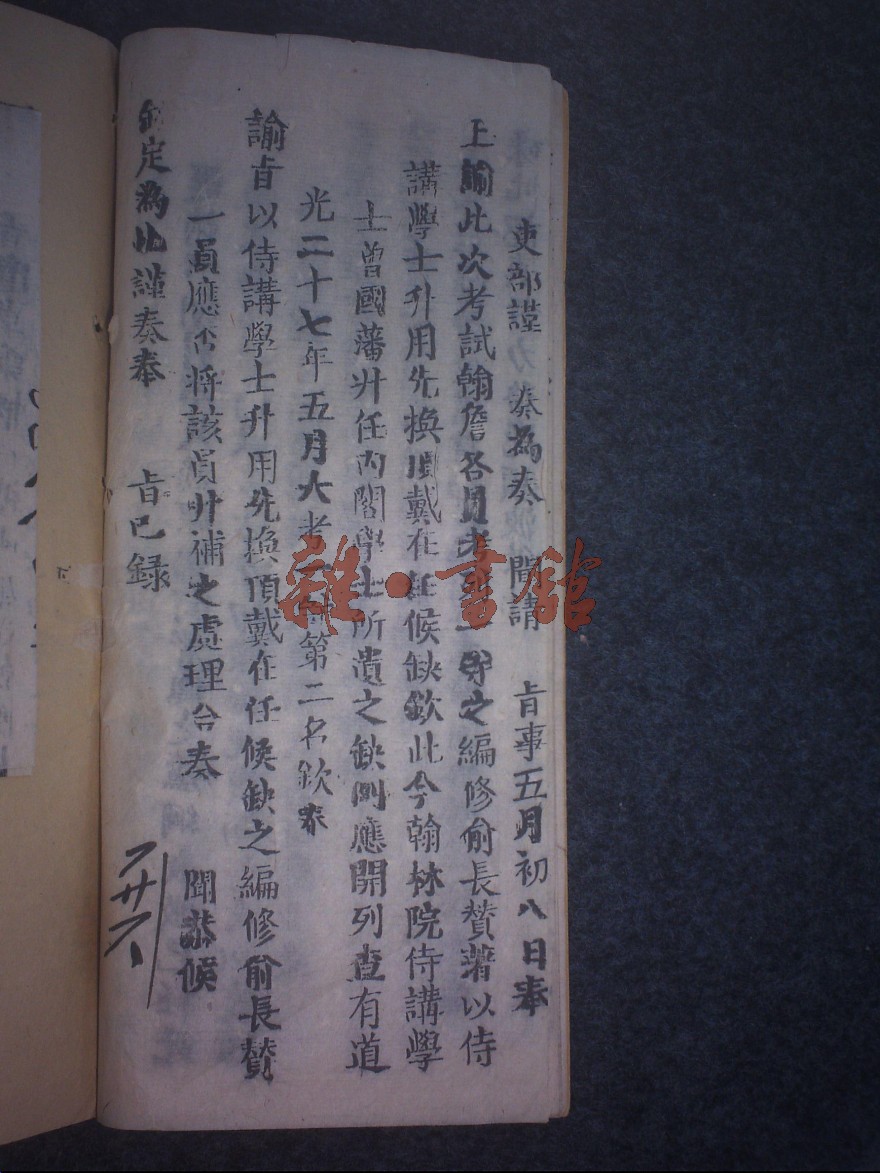 吏部謹　奏為奏　聞請　旨事五月初八日奉
上諭此次考試翰詹各員考列一等之編修俞長贊着以侍
講學士升用先換頂戴在任候缺欽此今翰林院侍講學
士曾國藩升任內閣學士所遺之缺例應開列查有道
光二十七年五月大考一等第二名欽奉
諭旨以侍講學士升用先換頂戴在任候缺之編修俞長贊
一員應否將該員升補之處理合奏　聞恭候
欽定為此謹奏奉　旨已錄
雜·書館